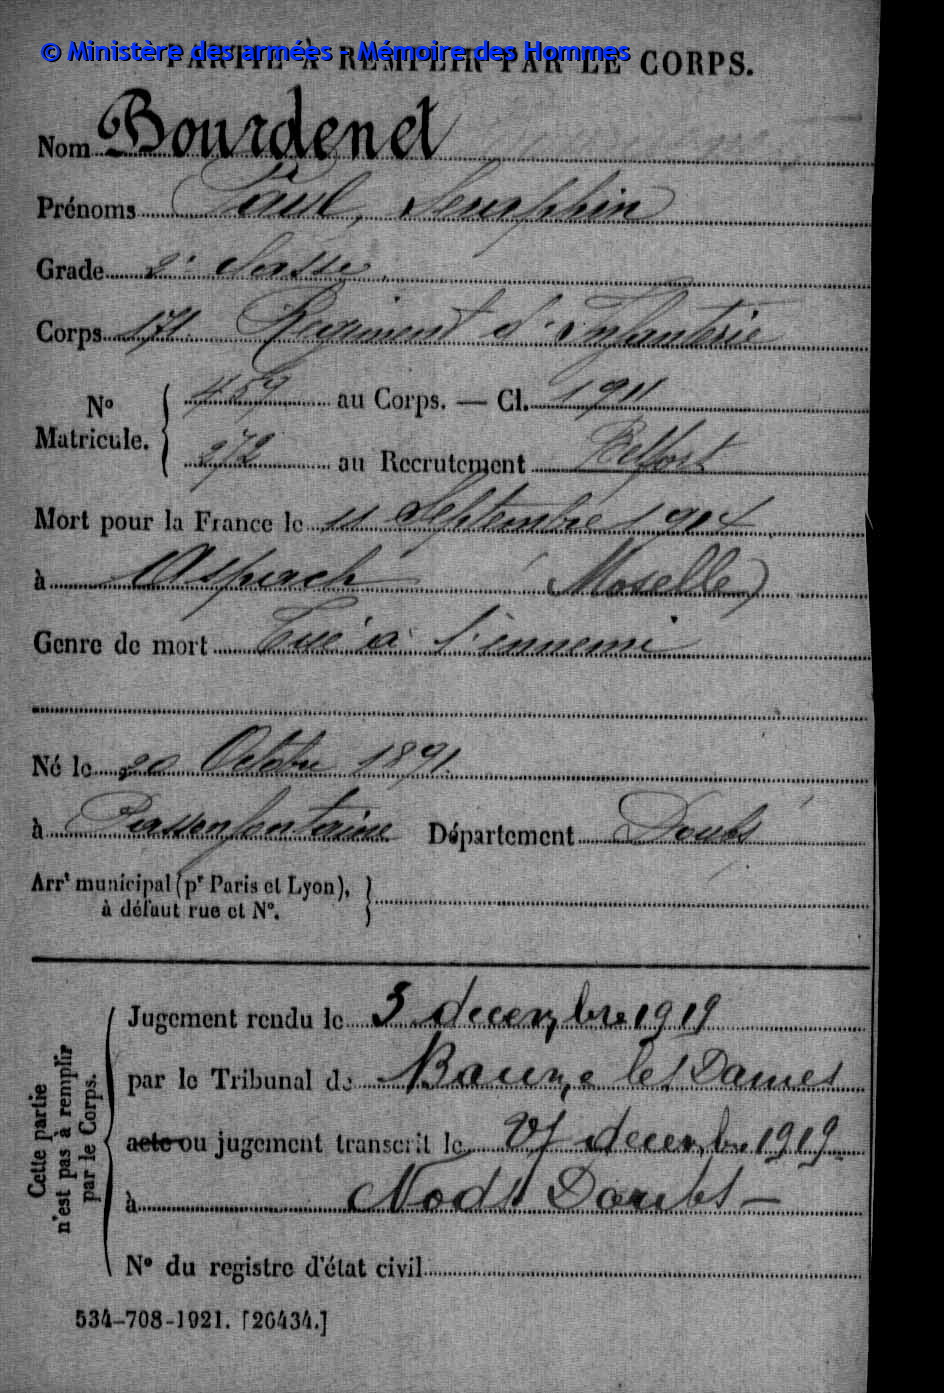 © Ministère des armées - Mémoire des Hommes
PARTIE À REMPLIR PAR LE CORPS.
Nom Bourdenet
Prénoms Paul, Seraphin
Grade 2e Classe
Corps 171 Régiment d'Infanterie
No Matricule. 459 au Corps. — Cl. 1911
272 au Recrutement Belfort
Mort pour la France le 11 Septembre 1914
à Aspach (Moselle)
Genre de mort Tué à l'ennemi
Né le 20 Octobre 1891
à Passonfontaine Département Doubs
Arrt municipal (pr Paris et Lyon), à défaut rue et No.
Cette partie n'est pas à remplir par le Corps.
Jugement rendu le 3 decembre 1919
par le Tribunal de Baume les Dames
acte ou jugement transcrit le decembre 1919
à Nods Doubs —
No du registre d'état civil
534-708-1921. [26434.]